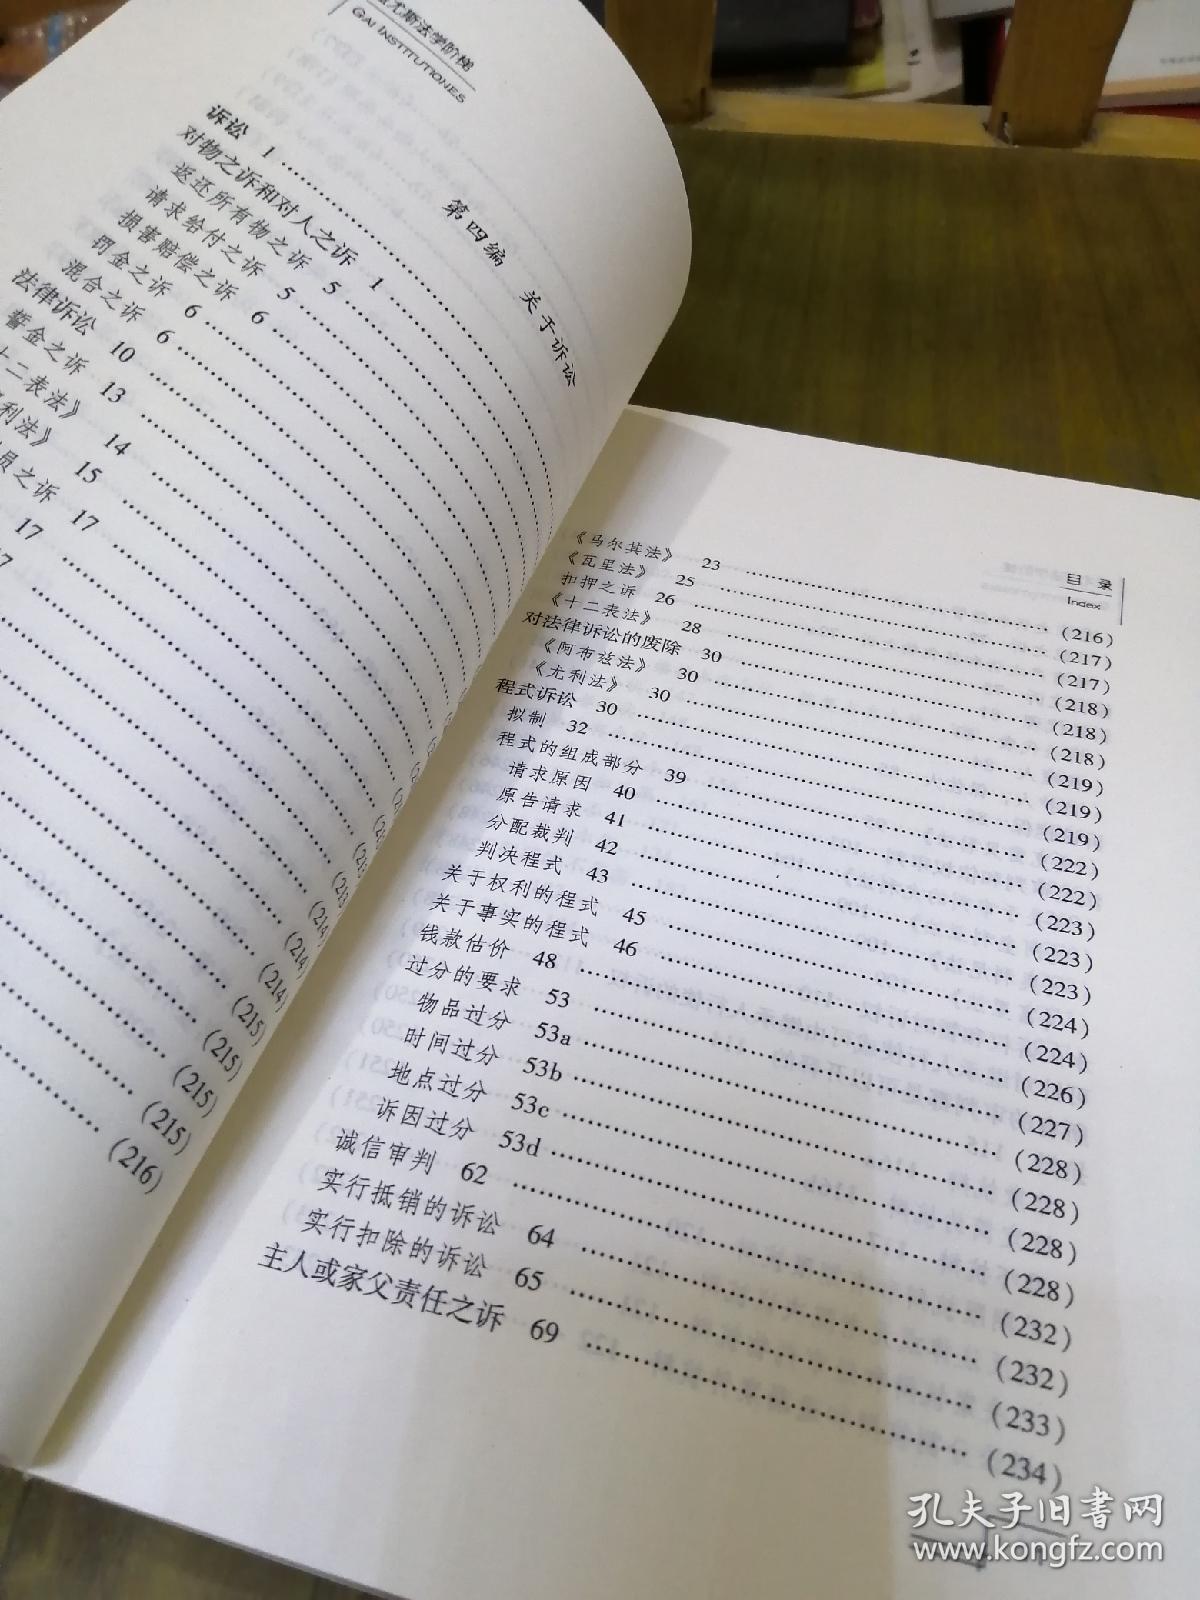 尤斯法学阶梯
GAI INSTITUTIONES
第四编 关于诉讼
诉讼 1
对物之诉和对人之诉 1
返还所有物之诉 5
请求给付之诉 5
损害赔偿之诉 6
罚金之诉 6
混合之诉 6
法律诉讼 10
誓金之诉 13
十二表法》 14
利法》 15
员之诉 17
17
(214)
(214)
(214)
(215)
(215)
(215)
(215)
(216)
目录
Index
《马尔其法》 23 (216)
《瓦里法》 25 (217)
扣押之诉 26 (217)
《十二表法》 28 (218)
对法律诉讼的废除 30 (218)
《阿布兹法》 30 (218)
《尤利法》 30 (219)
程式诉讼 30 (219)
拟制 32 (219)
程式的组成部分 39 (222)
请求原因 40 (222)
原告请求 41 (223)
分配裁判 42 (223)
判决程式 43 (223)
关于权利的程式 45 (224)
关于事实的程式 46 (224)
钱款估价 48 (226)
过分的要求 53 (227)
物品过分 53a (228)
时间过分 53b (228)
地点过分 53c (228)
诉因过分 53d (228)
诚信审判 62 (232)
实行抵销的诉讼 64 (232)
实行扣除的诉讼 65 (233)
主人或家父责任之诉 69 (234)
孔夫子旧书网
www.kongfz.com